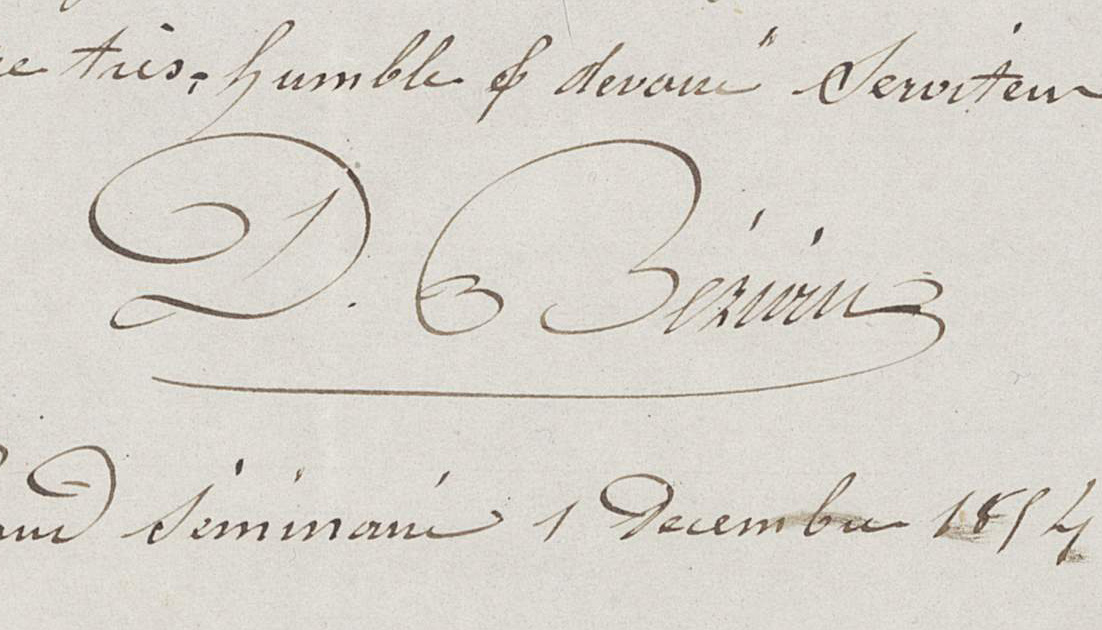 très-humble & devoué Serviteur
D. Bézivin
Séminaire 1 Decembre 1854